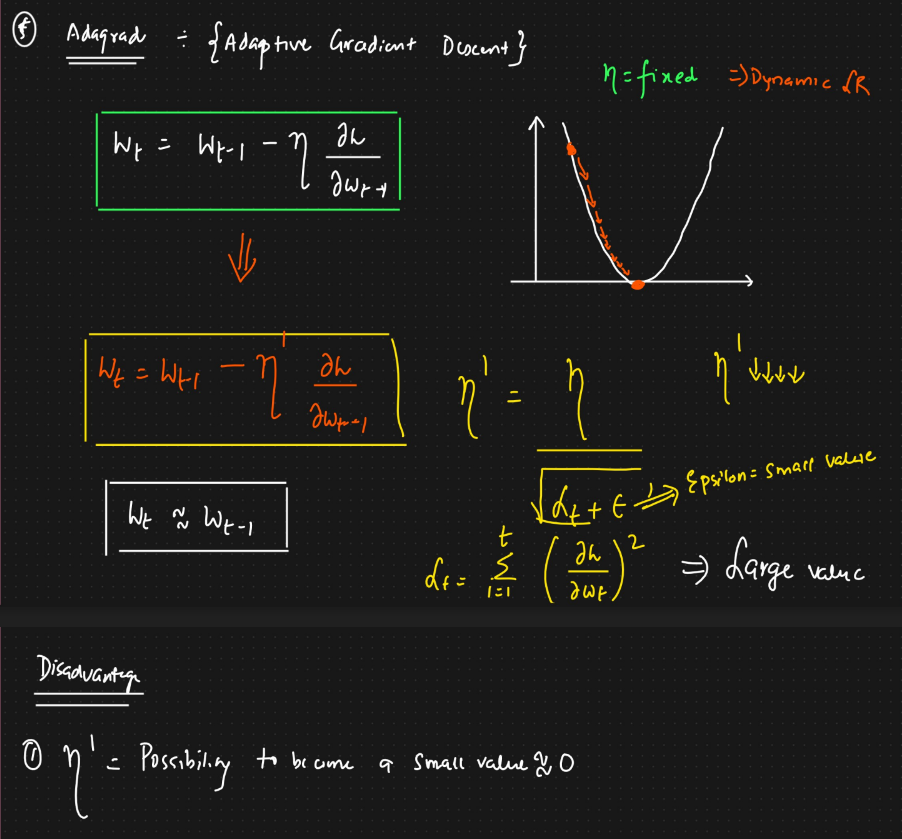 ⓕ Adagrad ÷ {Adaptive Gradient Descent}
η = fixed ⇒ Dynamic LR
W_t = W_{t-1} - η ∂L/∂W_{t-1}
⇓
W_t = W_{t-1} - η' ∂L/∂W_{t-1}
η' = η / √(α_t + ε) ⇒ Epsilon = small value
η' ↓↓↓↓
W_t ≈ W_{t-1}
α_t = Σ_{i=1}^{t} (∂L/∂W_t)^2 ⇒ Large value
Disadvantage
① η' = Possibility to become a small value ≈ 0